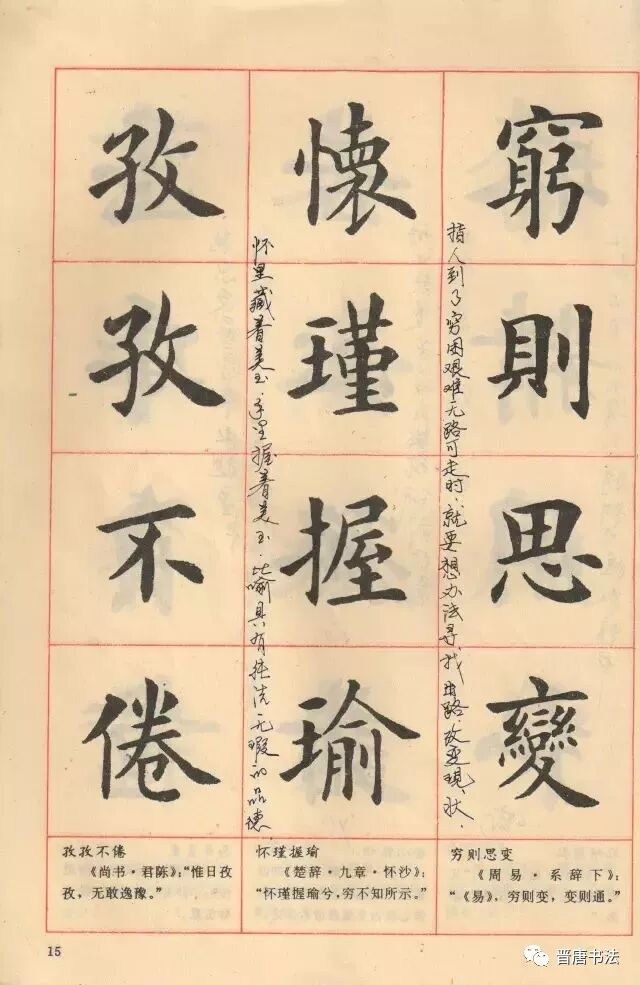 窮則思變
指人到了穷困艰难无路可走时、就要想办法寻找出路、改变现状.
懷瑾握瑜
怀里藏着美玉.手里握着美玉.比喻具有纯洁无瑕的品德.
孜孜不倦
穷则思变
《周易·系辞下》：
“《易》，穷则变，变则通。”
怀瑾握瑜
《楚辞·九章·怀沙》：
“怀瑾握瑜兮，穷不知所示。”
孜孜不倦
《尚书·君陈》：“惟日孜
孜，无敢逸豫。”
15
晋唐书法